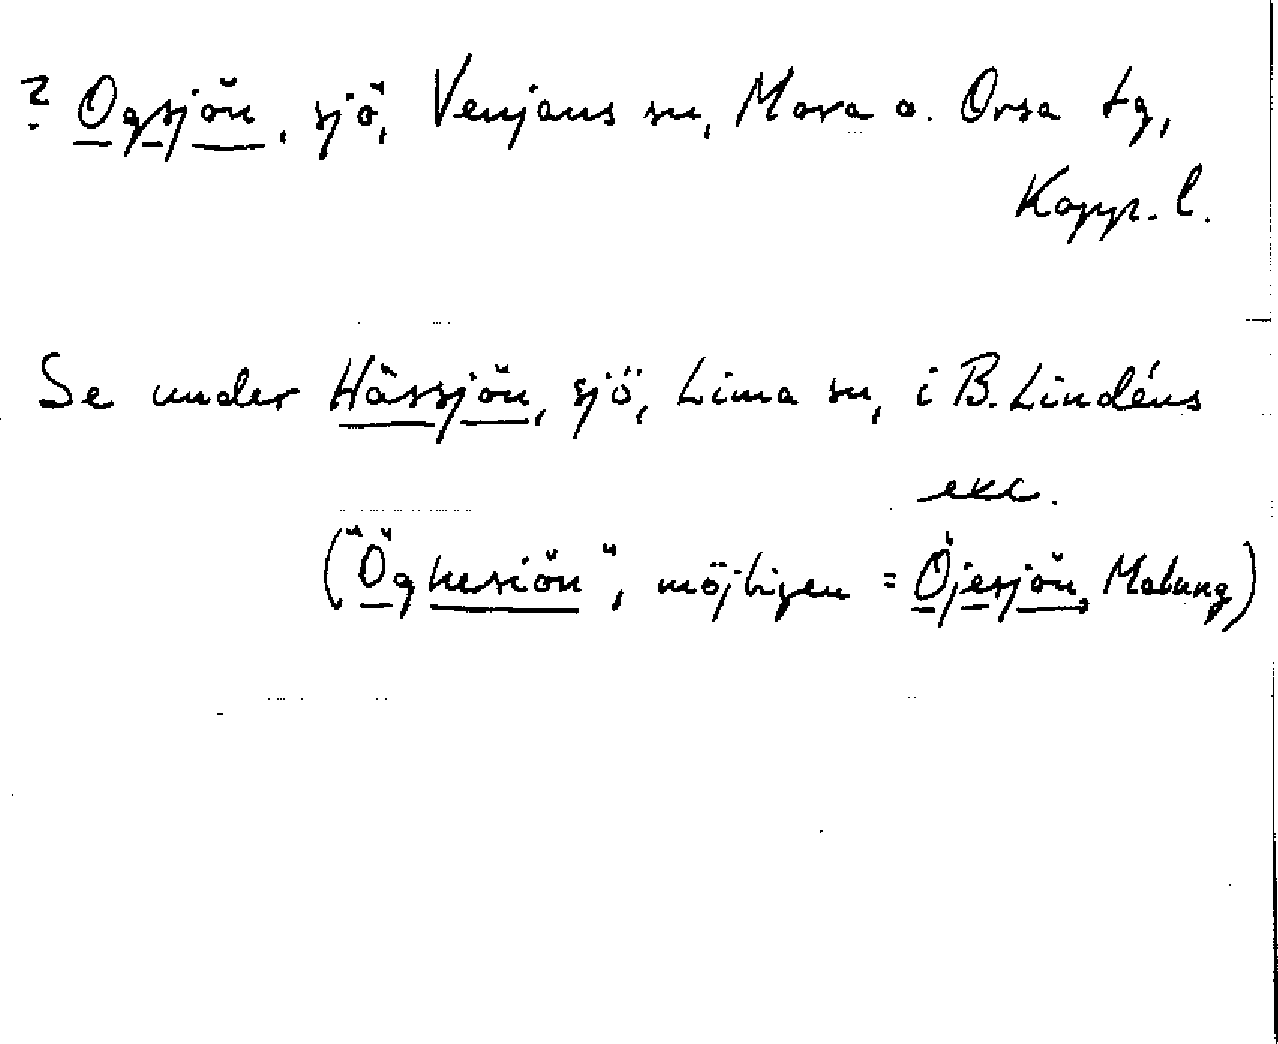 ? Ogsjön, sjö, Venjans sn, Mora o. Orsa tg,
Kopp. l.
Se under Hässjön, sjö, Lima sn, i B. Lindéns
exc.
("Öghesiön", möjligen = Öjesjön, Malung)